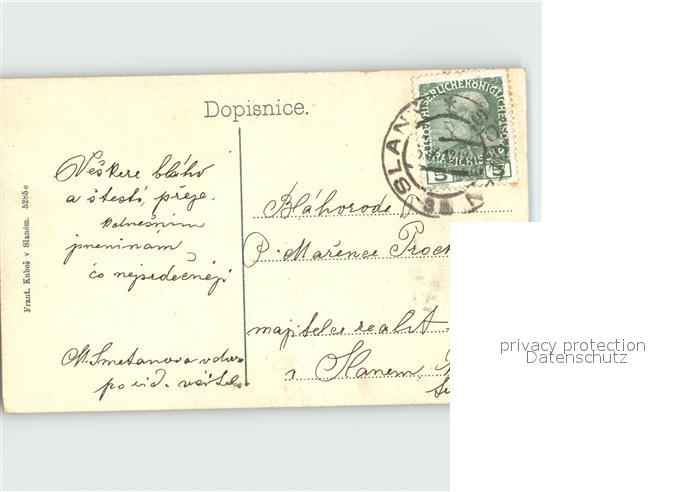 Dopisnice.
Veškere bláho
a štestí, přeje.
kdnešním
jmeninám
čo nejsrdečněji
M. Smetanova vdova
po
Frant. Kubeš v Slaném. 5285e
KAISERLICHE KÖNIGLICHE
5 5
SLAN
Bláhorode
P. Mařence Proch
majitelce realit
v Slanem
privacy protection
Datenschutz